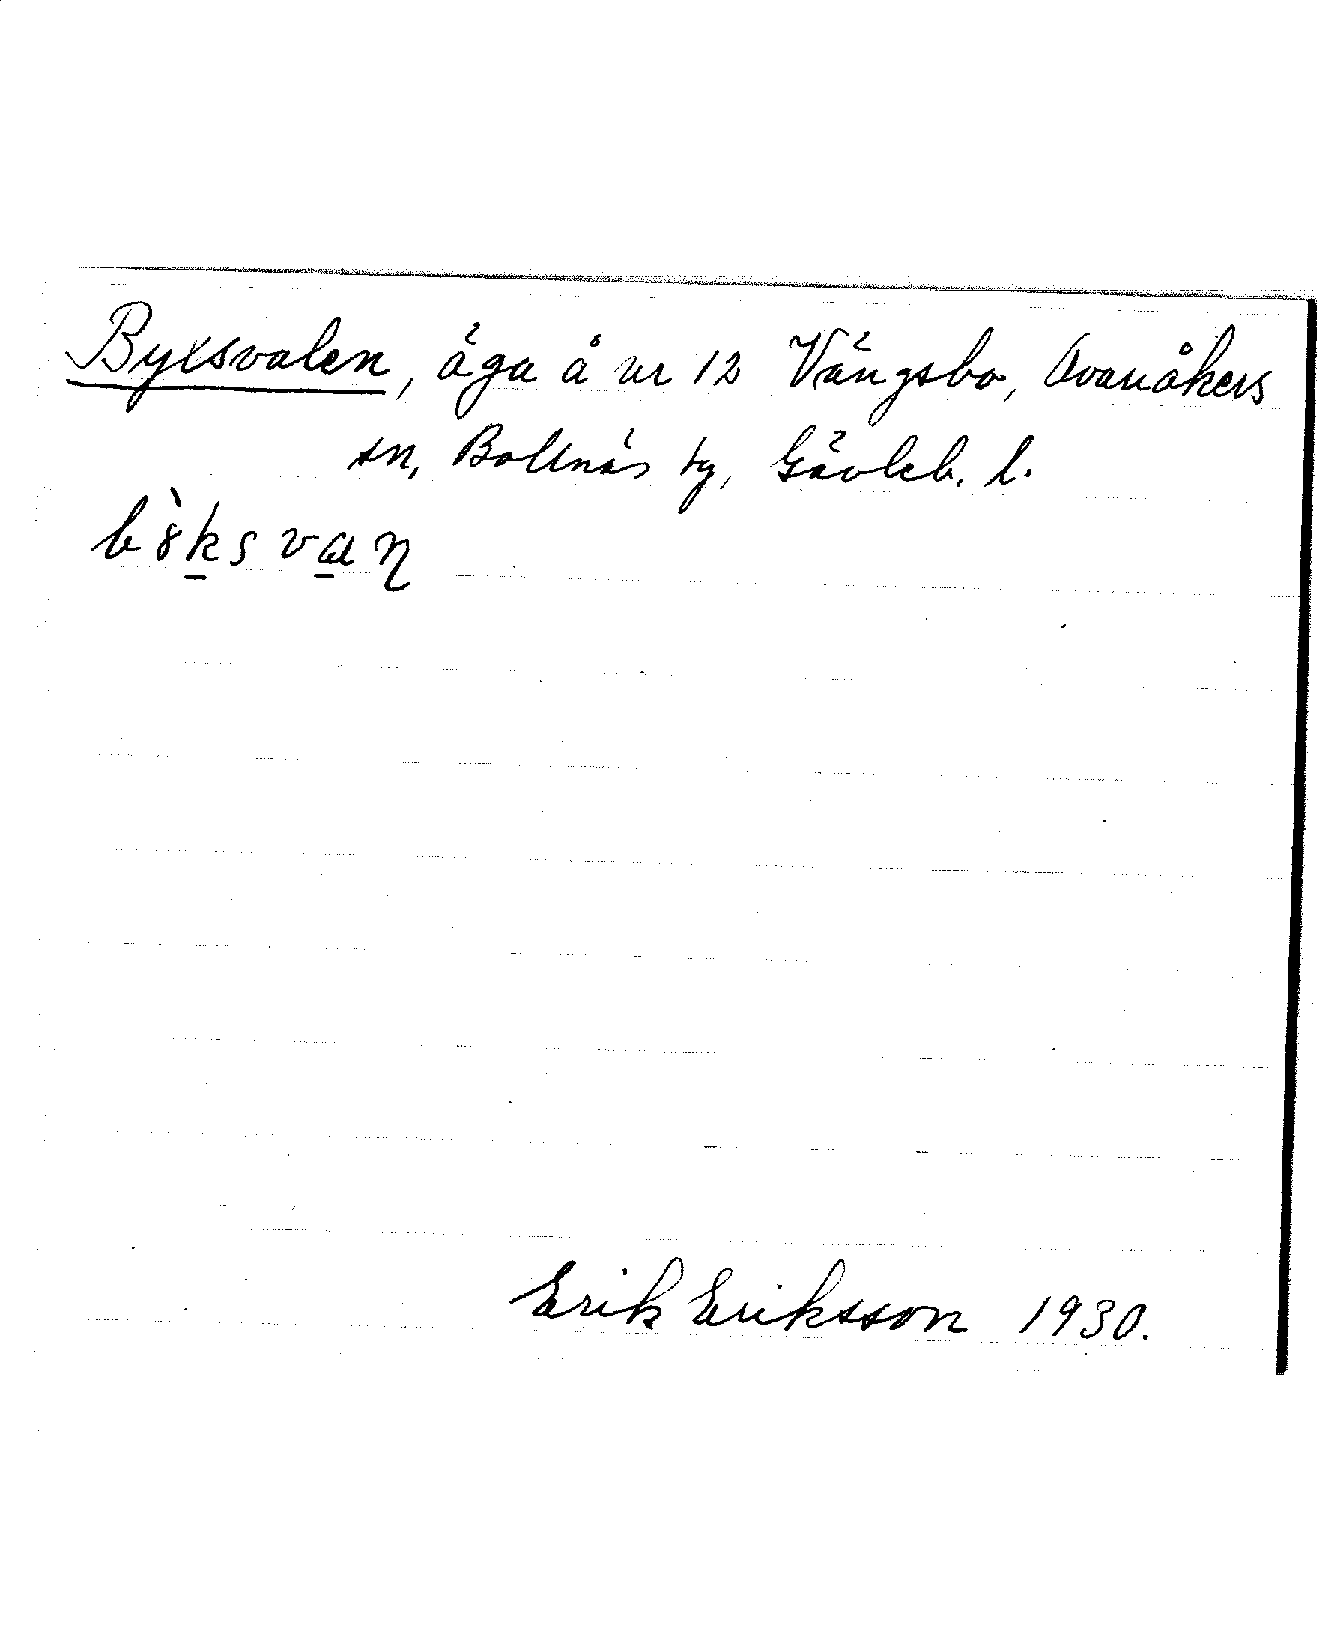 Byxsvalen, äga å nr 12 Vängsbo, Ovanåkers
sn, Bollnäs tg, Gävleb. l.
bø̀ksvaɳ
Erik Eriksson 1930.